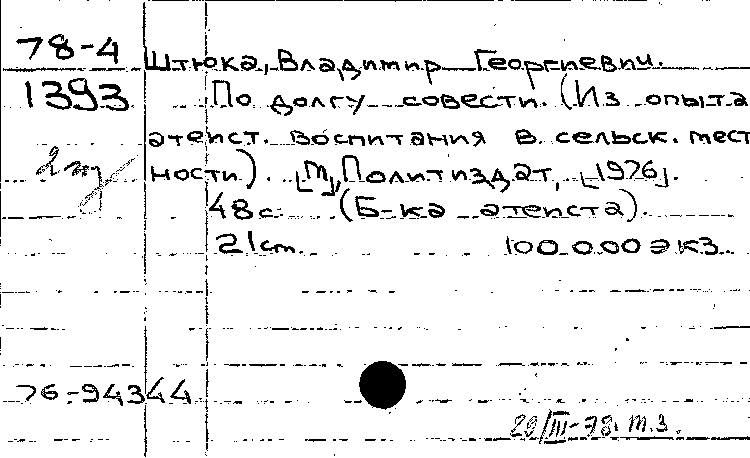 78-4 Штюка, Владимир Георгиевич.
1393 По долгу совести. (Из опыта
атеист. воспитания в сельск. мест
ности). [М], Политиздат, [1976].
48 с. (Б-ка атеиста).
21 см. 100.000 экз.
76-94344
29/III-78. т.з.